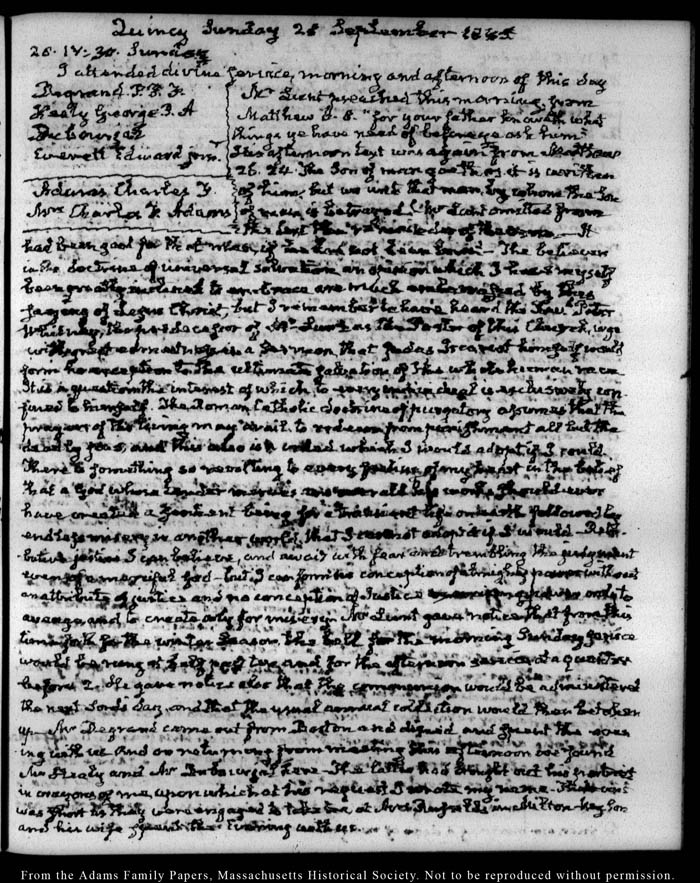 Quincy Sunday 28 September 1845
28. IV:30. Sunday
I attended divine service, morning and afternoon of this day
Degrand P. P. F.
Healy George P. A
Dubourgal
Everett Edward junr.
Adams Charles F.
Mrs Charles F. Adams
Mr Lunt preached this morning from
Matthew 6. 8. "for your father knoweth what
things ye have need of before ye ask him"
His afternoon text was again from Matthew
26. 24. The Son of man goeth as it is written
of him, but wo unto that man, by whom the Son
of man is betrayed. Mr Lunt omitted from
the text the remainder of the verse — It
had been good for that man, if he had not been born — The believer
in the doctrine of universal salvation an opinion which I have myself
been greatly inclined to embrace are much embarrassed by this
saying of Jesus Christ, but I remember to have heard the Revd. Peter
Whitney, the predecessor of Mr Lunt as the Pastor of this Church, urge
with great earnestness in a Sermon, that Judas Iscariot himself would
form no exception to the ultimate salvation of the whole human race
It is a question the interest of which to every individual is exclusively con-
fined to himself. The Roman Catholic doctrine of purgatory assumes that the
prayers of the living may avail to redeem from punishment all but the
deadly sins, and this also is a creed which I would adopt if I could.
There is something so revolting to every feeling of my heart in the belief
that a God whose tender mercies are over all his works should ever
have created a sentient being for a transient life on earth followed by
endless misery in another world, that I cannot adopt it if I would — Retri-
butive justice I can believe, and await with fear and trembling the judgment
even of a merciful God — but I can form no conception of almighty power without
an attribute of justice and no conception of Justice only to
avenge and to create only for misery. Mr Lunt gave notice that from this
time forth for the winter season the bell for the morning Sunday service
would be rung at half past and for the afternoon service at a quarter
before 2. He gave notice also that the communion would be administered
the next Lords day, and that the usual annual collection would then be taken
up. Mr Degrand came out from Boston and dined and spent the even
ing with us. And on returning from meeting this afternoon we found
Mr Healy and Mr Dubourgal here. The latter had brought out his portrait
in crayons of me, upon which at his request I wrote my name. Their visit
was short as they were engaged to take tea at in Milton. My Son
and his wife spent the Evening with us.
From the Adams Family Papers, Massachusetts Historical Society. Not to be reproduced without permission.